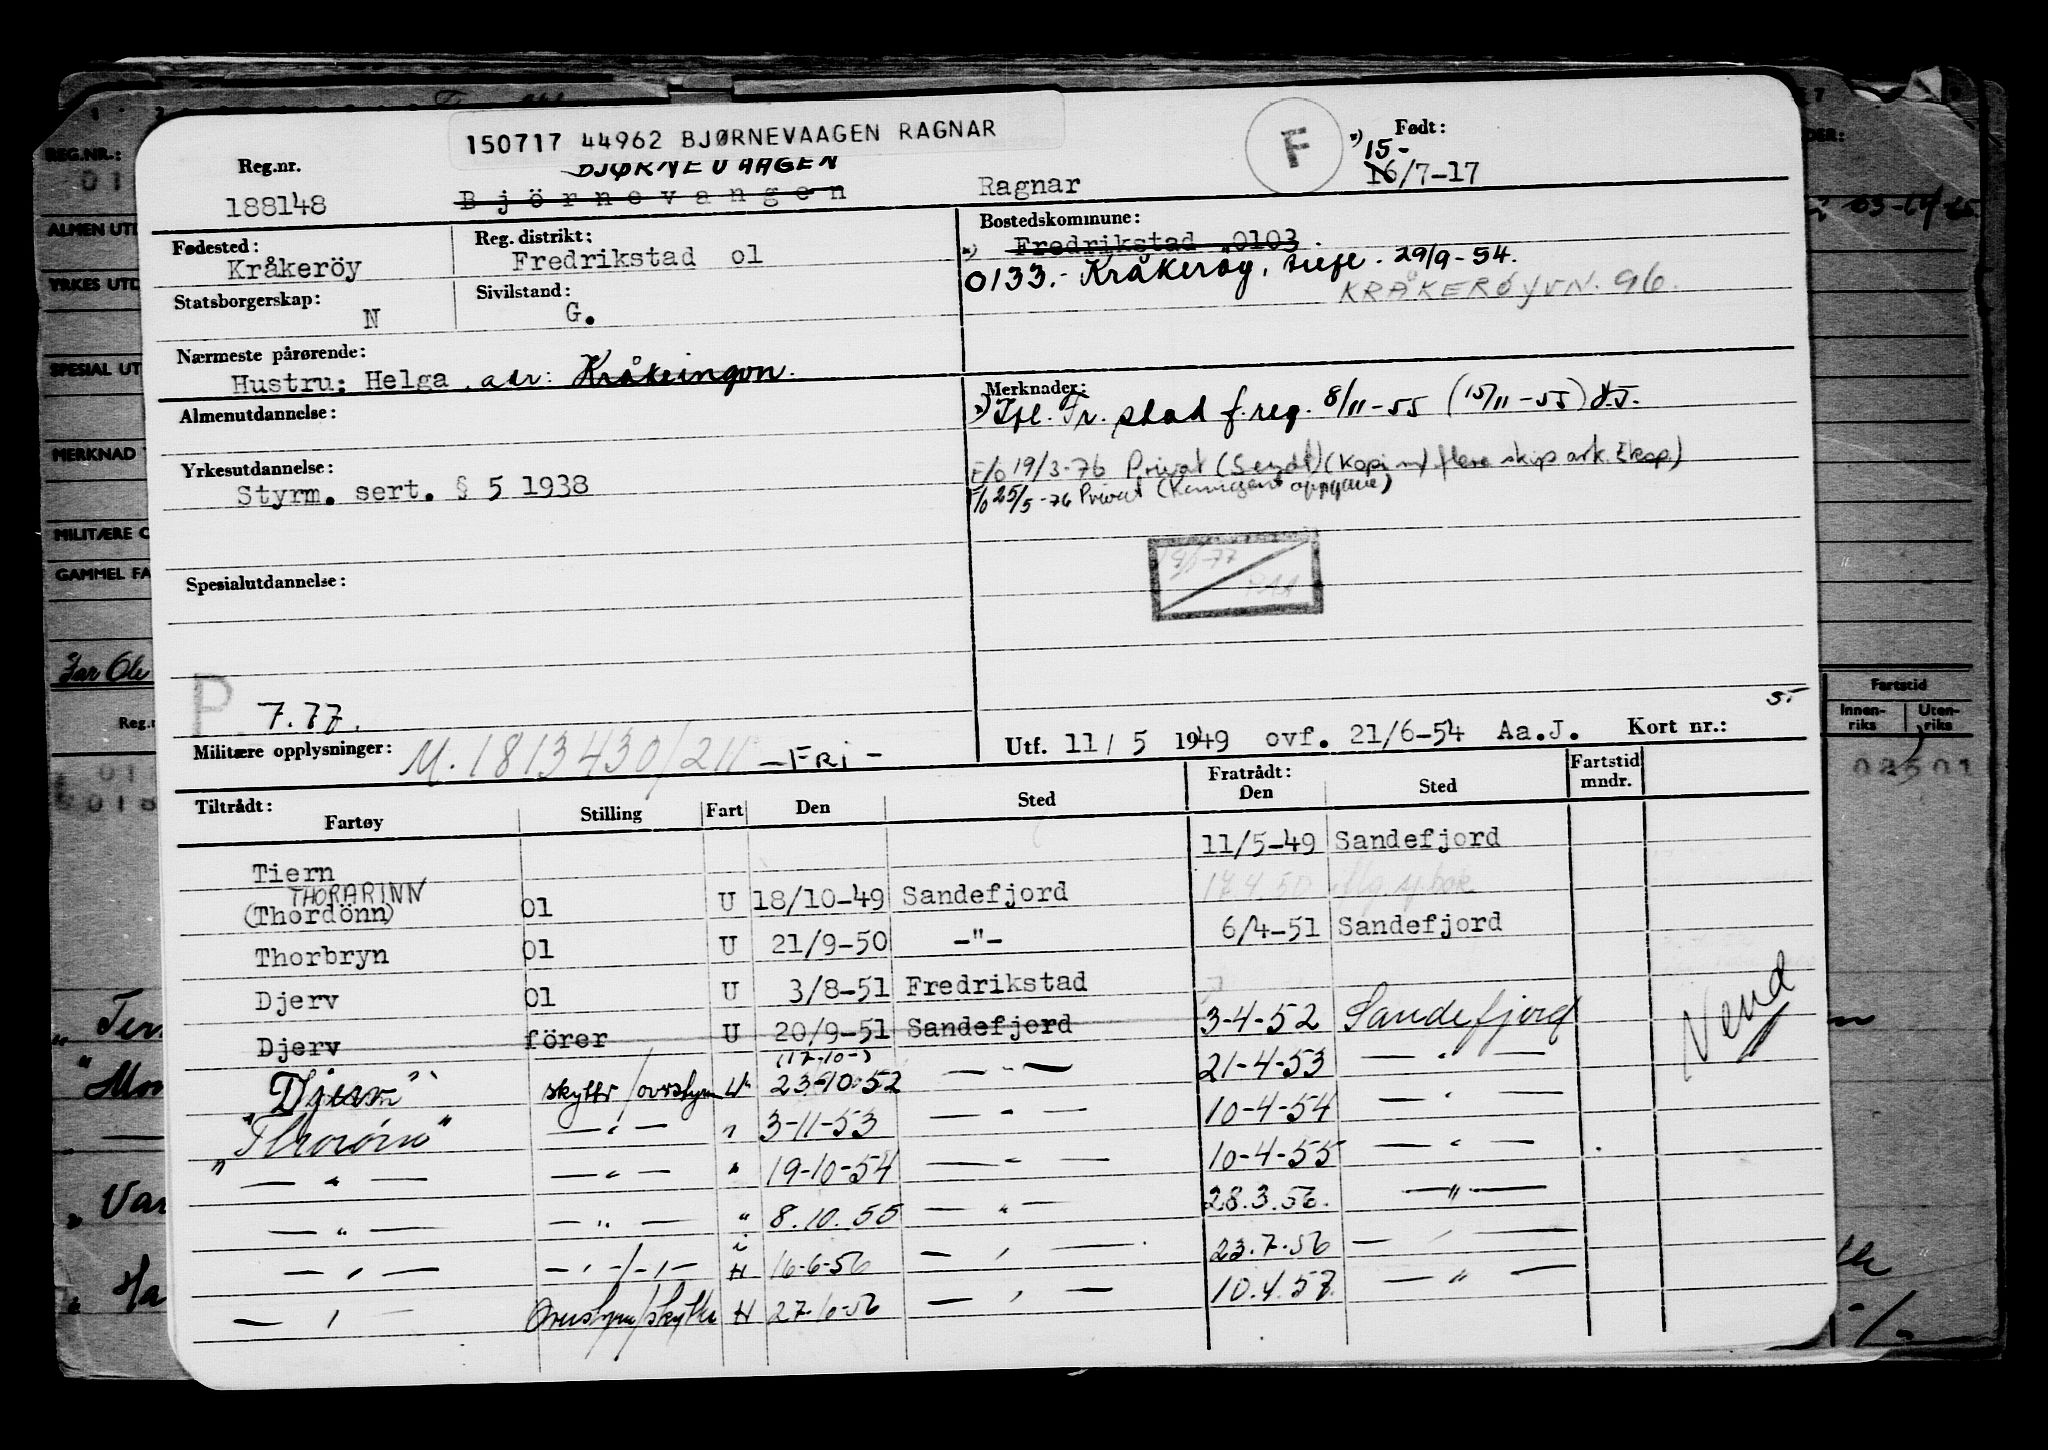 150717 44962 BJØRNEVAAGEN RAGNAR
F
Født:
15-
16/7-17
Reg.nr.
188148
BJØRNEVAAGEN
Björnevangen
Ragnar
Fødested:
Kråkeröy
Reg. distrikt:
Fredrikstad ol
Bostedskommune:
Fredrikstad 0103
0133.- Kråkerøy, 29/9-54.
KRÅKERØYVN. 96.
Statsborgerskap:
N
Sivilstand:
G.
Nærmeste pårørende:
Hustru: Helga, adr:
Almenutdannelse:
Merknader:
Fr. stad f. reg. 8/11-55 (15/11-55)
Yrkesutdannelse:
Styrm. sert. § 5 1938
F/o 19/3-76 Privat (Sendt) (Kopi m/ flere skip ark. Eksp.)
F/o 25/5-76 Privat
Spesialutdannelse:
P
7.77.
Militære opplysninger:
M. 1813430/211 - FRI -
Utf. 11/5 1949 ovf. 21/6-54 Aa.J. Kort nr.:
Tiltrådt:
Fartøy Stilling Fart Den Sted
Fratrådt:
Den Sted
Fartstid mndr.
Tiern 11/5-49 Sandefjord
THORARINN
(Thordönn) Ol U 18/10-49 Sandefjord 17.4.50
Thorbryn Ol U 21/9-50 -"- 6/4-51 Sandefjord
Djerv Ol U 3/8-51 Fredrikstad
Djerv förer U 20/9-51 Sandefjord 3-4-52 Sandefjord
(17-10-)
"Djerv" skytter/ovrstyrm U 23-10-52 — " — 21-4-53 — " —
"Thorörn" — " — " 3-11-53 — " — 10-4-54 — " —
" — " — — " — " 19-10-54 — " — 10-4-55 — " —
— " — — " — " 8.10.55 — " — 28.3.56. — " —
— " — — " —/— " — H 16-6-56 — " — 23.7.56 — " —
— " — Overstyrm/skytter H 27-10-56 — " — 10.4.57. — " —
Vend
REG.NR.:
ALMEN UTD
YRKES UTD
SPESIAL UT
MERKNAD
MILITÆRE O
GAMMEL FA
Reg.n
Fartstid
Innen-riks
Uten-riks
02501